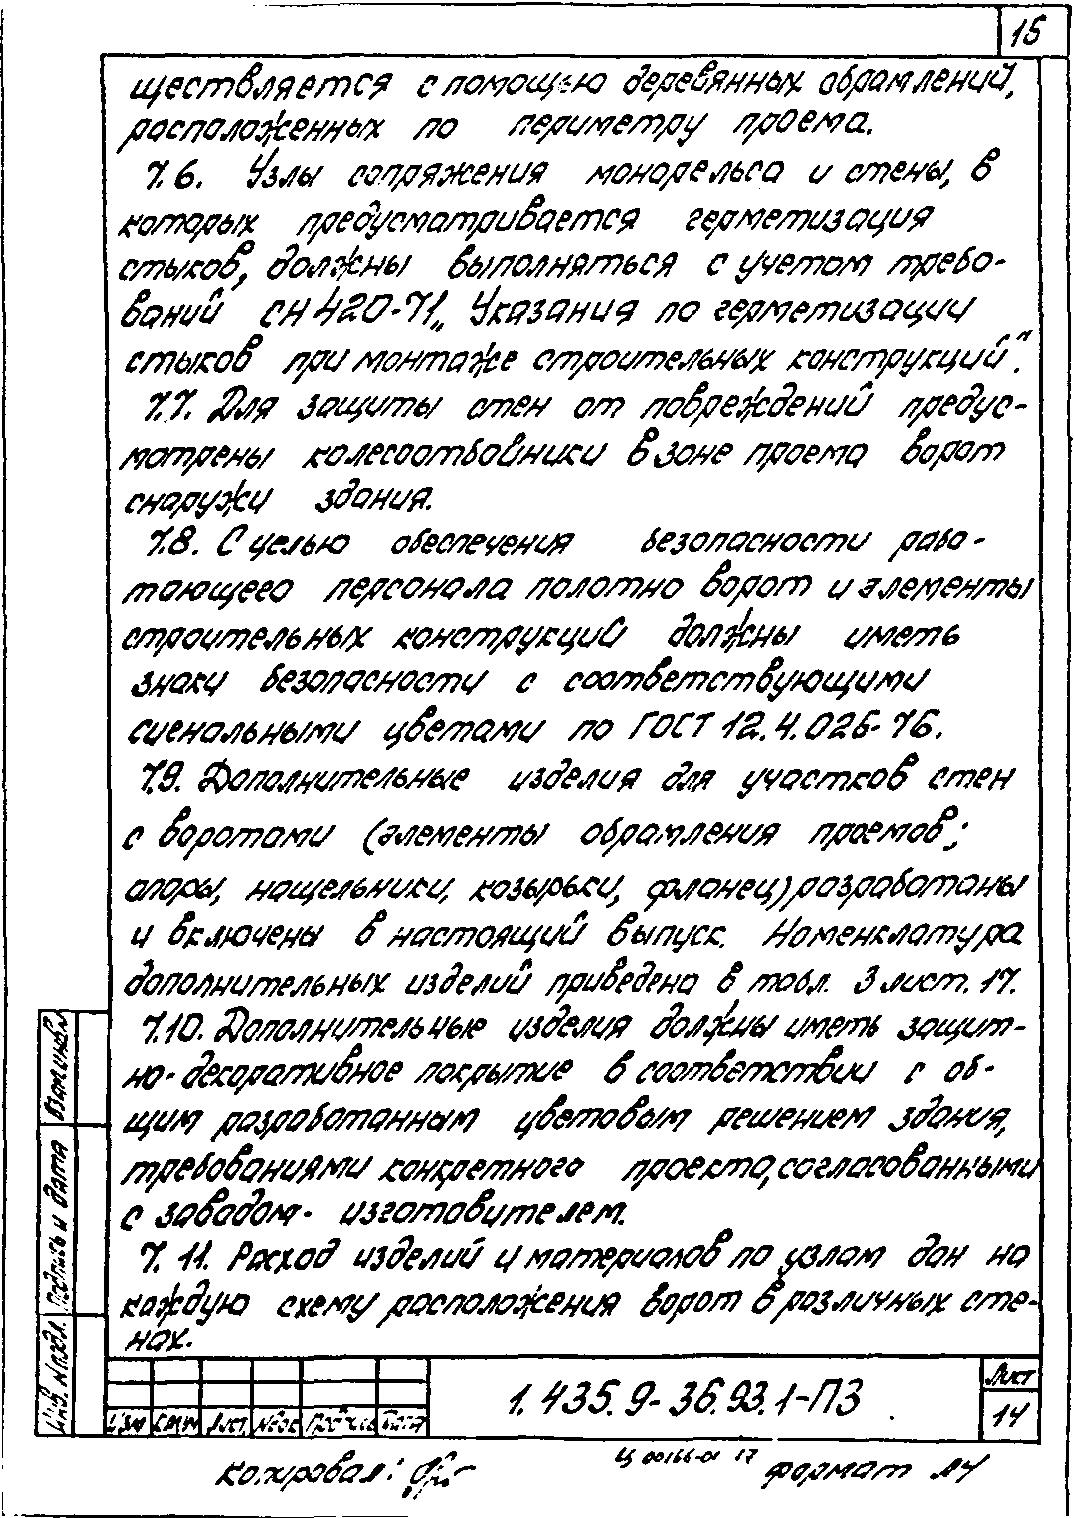 15
ществляется с помощью деревянных обрамлений,
расположенных по периметру проема.
7.6. Узлы сопряжения монорельса и стены, в
которых предусматривается герметизация
стыков, должны выполняться с учетом требо-
ваний СН 420-71 „Указания по герметизации
стыков при монтаже строительных конструкций“.
7.7. Для защиты стен от повреждений предус-
мотрены колесоотбойники в зоне проема ворот
снаружи здания.
7.8. С целью обеспечения безопасности рабо-
тающего персонала полотно ворот и элементы
строительных конструкций должны иметь
знаки безопасности с соответствующими
сигнальными цветами по ГОСТ 12.4.026-76.
7.9. Дополнительные изделия для участков стен
с воротами (элементы обрамления проемов;
опоры, нащельники, козырьки, фланец) разработаны
и включены в настоящий выпуск. Номенклатура
дополнительных изделий приведена в табл. 3 лист. 17.
7.10. Дополнительные изделия должны иметь защит-
но-декоративное покрытие в соответствии с об-
щим разработанным цветовым решением здания,
требованиями конкретного проекта, согласованными
с заводом-изготовителем.
7.11. Расход изделий и материалов по узлам дан на
каждую схему расположения ворот в различных сте-
нах.
Взам.инв.№
Подпись и дата
Инв. № подл.
Изм Кол.уч Лист №док Подпись Дата
1.435.9-36.93.1-ПЗ
Лист
14
Копировал:
Ц 00166-01 17
формат А4